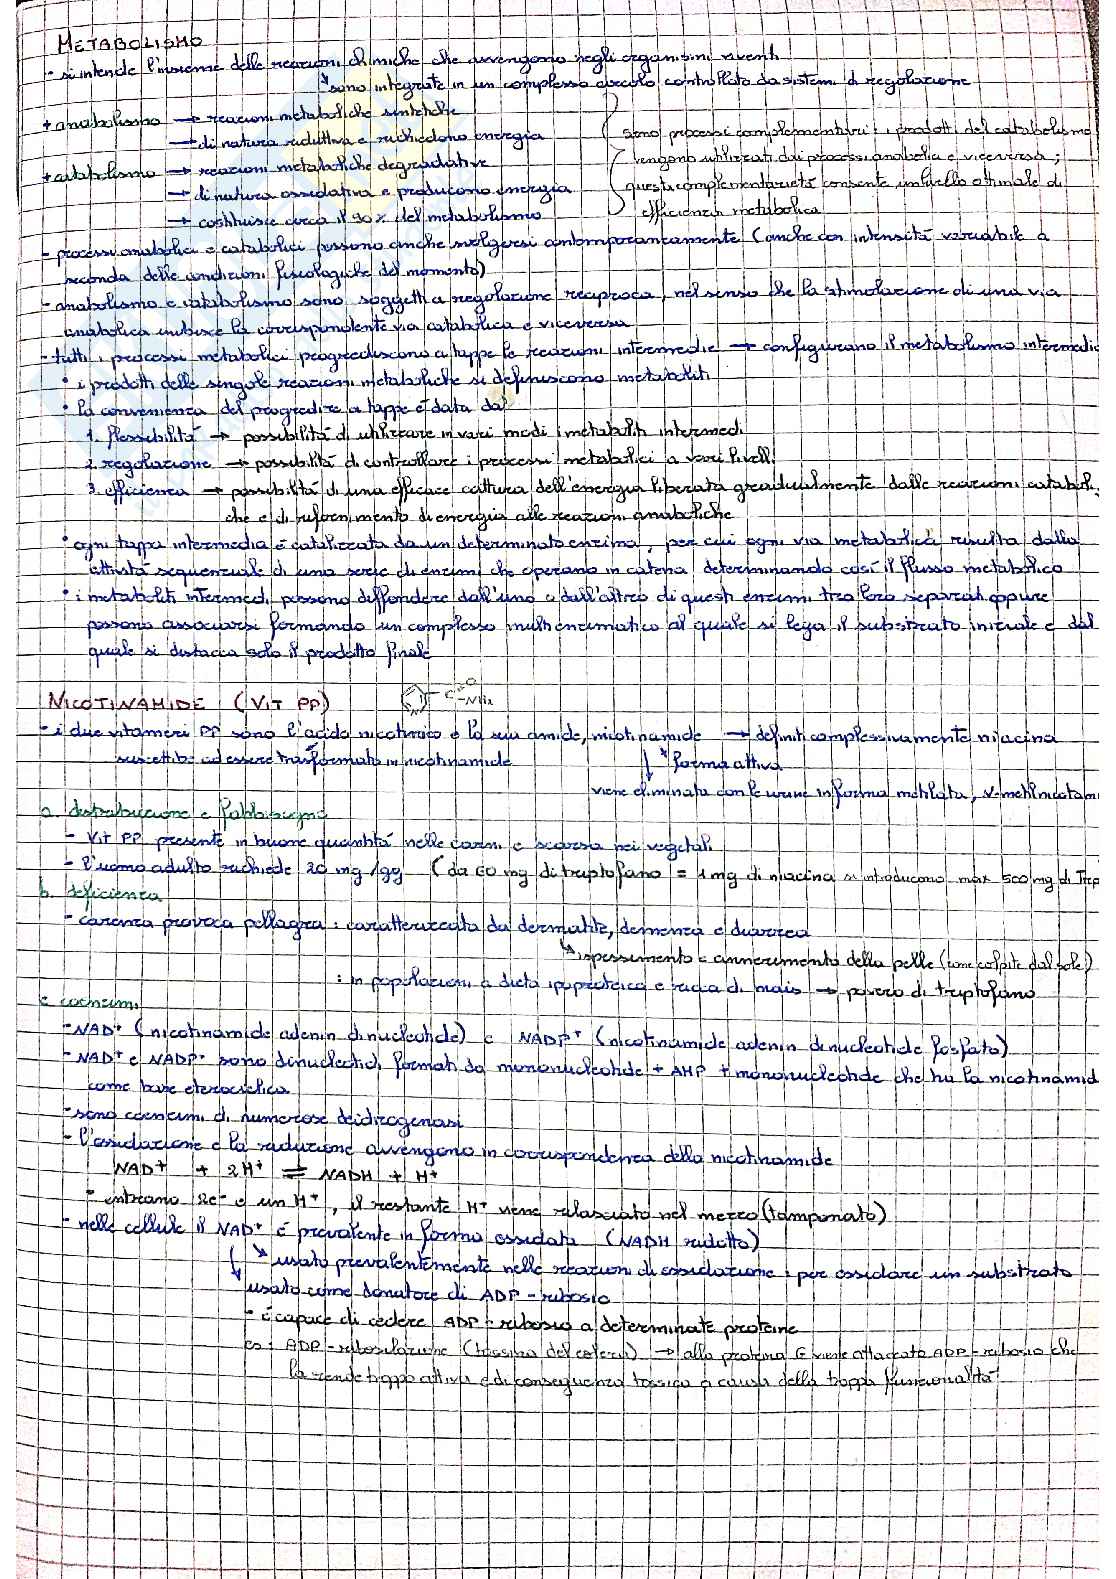 METABOLISMO
- si intende l'insieme delle reazioni chimiche che avvengono negli organismi viventi
↳ sono integrate in un complesso circolo controllato da sistemi di regolazione
+ anabolismo → reazioni metaboliche sintetiche
→ di natura riduttiva e richiedono energia
+ catabolismo → reazioni metaboliche degradative
→ di natura ossidativa e producono energia
→ costituisce circa il 90% del metabolismo
sono processi complementari: i prodotti del catabolismo
vengono utilizzati dai processi anabolici e viceversa;
questa complementarietà consente un livello ottimale di
efficienza metabolica
- processi anabolici e catabolici possono anche svolgersi contemporaneamente (anche con intensità variabile a
seconda delle condizioni fisiologiche del momento)
- anabolismo e catabolismo sono soggetti a regolazione reciproca, nel senso che la stimolazione di una via
anabolica inibisce la corrispondente via catabolica e viceversa
- tutti i processi metabolici progrediscono a tappe le reazioni intermedie → configurano il metabolismo intermedio
• i prodotti delle singole reazioni metaboliche si definiscono metaboliti
• la convenienza del progredire a tappe è data da:
1. flessibilità → possibilità di utilizzare in vari modi i metaboliti intermedi
2. regolazione → possibilità di controllare i processi metabolici a vari livelli
3. efficienza → possibilità di una efficace cattura dell'energia liberata gradualmente dalle reazioni cataboli
che e di rifornimento di energia alle reazioni anaboliche
• ogni tappa intermedia è catalizzata da un determinato enzima, per cui ogni via metabolica risulta dalla
attività sequenziale di una serie di enzimi che operano in catena, determinando così il flusso metabolico
• i metaboliti intermedi possono diffondere dall'uno e dall'altro di questi enzimi tra loro separati oppure
possono associarsi formando un complesso multienzimatico al quale si lega il substrato iniziale e dal
quale si distacca solo il prodotto finale
NICOTINAMIDE (VIT PP)
N C=O -NH2
- i due vitameri PP sono l'acido nicotinico e la sua amide, nicotinamide → definiti complessivamente niacina
suscettibile ad essere trasformato in nicotinamide
↘ forma attiva
viene eliminata con le urine in forma metilata, N-metilnicotinam
a. distribuzione e fabbisogno
- Vit PP presente in buone quantità nelle carni e scarsa nei vegetali
- l'uomo adulto richiede 20 mg/gg (da 60 mg di triptofano = 1 mg di niacina si introducono max 500 mg di Trp
b. deficienza
- carenza provoca pellagra: caratterizzata da dermatite, demenza e diarrea
↳ ispessimento e annerimento della pelle (zone colpite dal sole)
: in popolazioni a dieta ipoproteica e ricca di mais → povero di triptofano
c. coenzimi
- NAD+ (nicotinamide adenin dinucleotide) e NADP+ (nicotinamide adenin dinucleotide fosfato)
- NAD+ e NADP+ sono dinucleotidi formati da mononucleotide + AMP + mononucleotide che ha la nicotinamid
come base eterociclica
- sono coenzimi di numerose deidrogenasi
- l'ossidazione e la riduzione avvengono in corrispondenza della nicotinamide
NAD+ + 2H+ ⇌ NADH + H+
- entrano 2e- e un H+, il restante H+ viene rilasciato nel mezzo (tamponato)
- nelle cellule il NAD+ è prevalente in forma ossidata (NADH ridotto)
↘ usato prevalentemente nelle reazioni di ossidazione: per ossidare un substrato
↓ usato come donatore di ADP-ribosio
- è capace di cedere ADP-ribosio a determinate proteine
es: ADP-ribosilazione (tossina del colera) → alla proteina G viene attaccato ADP-ribosio che
la rende troppo attiva e di conseguenza tossica a causa della troppa funzionalità